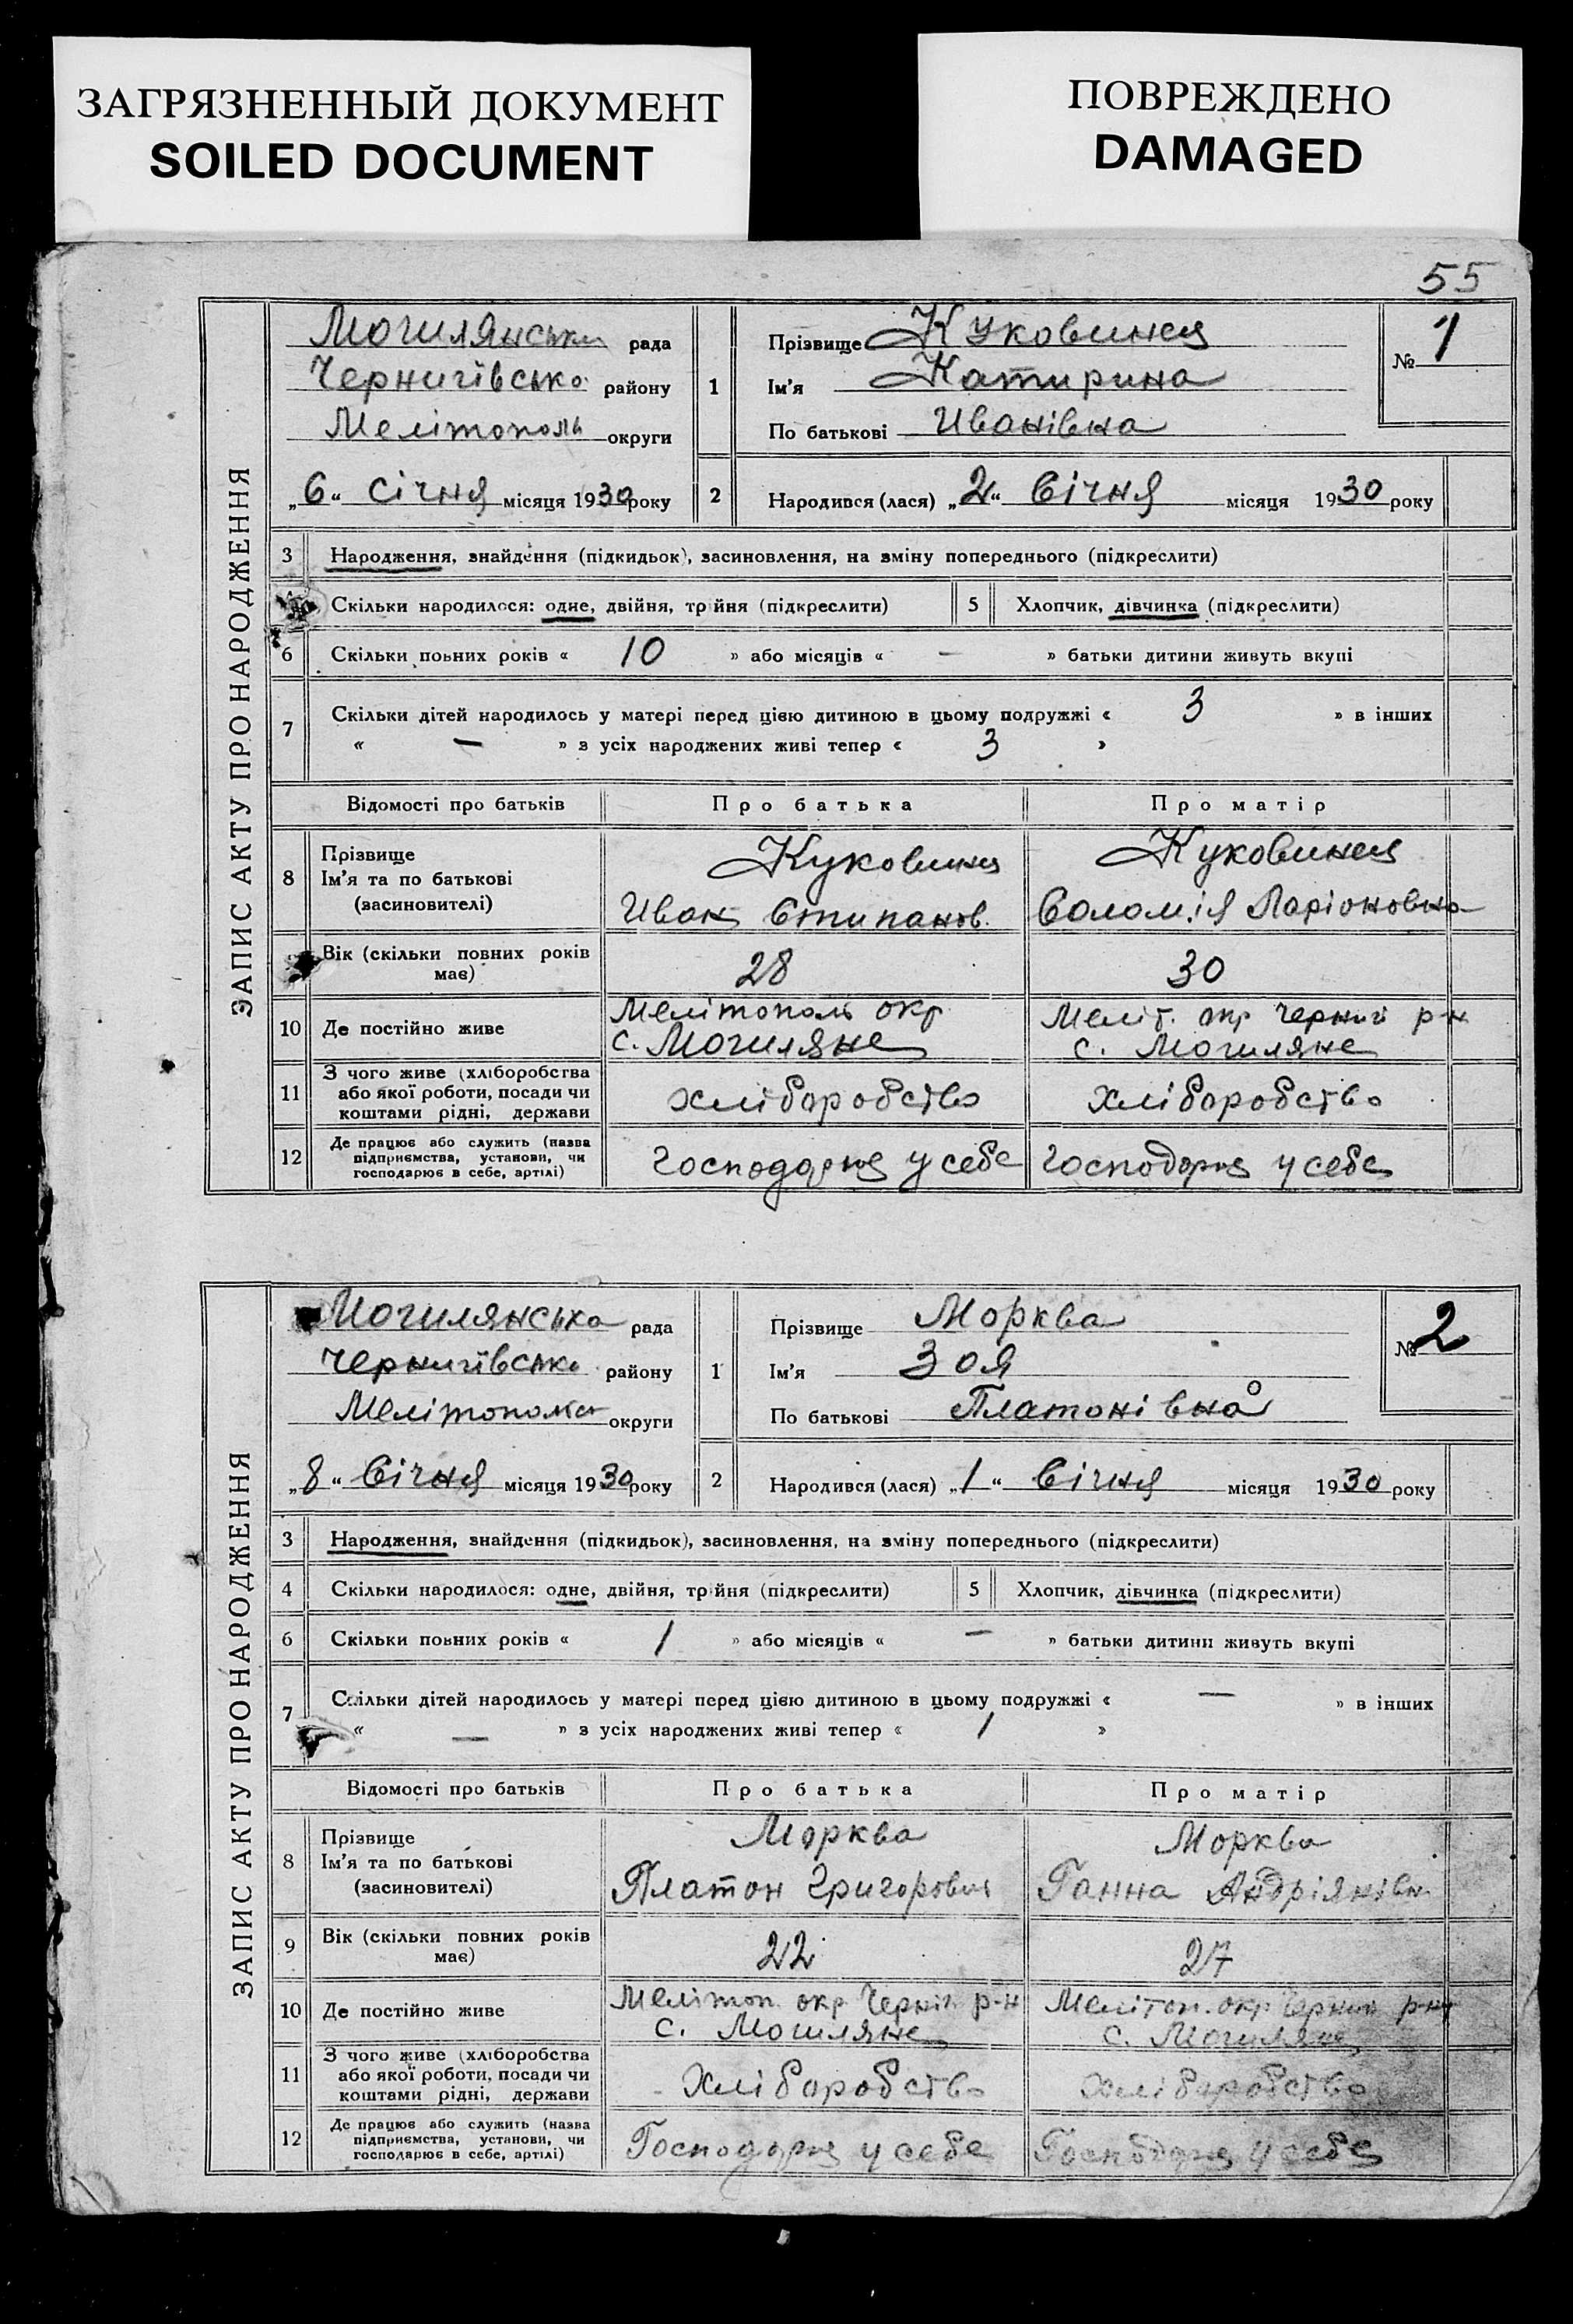 ЗАГРЯЗНЕННЫЙ ДОКУМЕНТ
SOILED DOCUMENT
ПОВРЕЖДЕНО
DAMAGED
55
ЗАПИС АКТУ ПРО НАРОДЖЕННЯ
Могилянська рада
Чернигівсько району
Мелітополь округи
„6“ Січня місяця 1930 року
1 Прізвище Куковинец
Ім'я Катирина
По батькові Иванівна
№ 1
2 Народився (лася) „2“ Січня місяця 1930 року
3 Народження, знайдення (підкидьок), засиновлення, на зміну попереднього (підкреслити)
Скільки народилося: одне, двійня, трійня (підкреслити) 5 Хлопчик, дівчинка (підкреслити)
6 Скільки повних років « 10 » або місяців « — » батьки дитини живуть вкупі
7 Скільки дітей народилось у матері перед цією дитиною в цьому подружжі « 3 » в інших
« — » з усіх народжених живі тепер « 3 »
Відомості про батьків Про батька Про матір
8 Прізвище
Ім'я та по батькові
(засиновителі)
Куковинец
Иван Степанов.
Куковинец
Соломія Ларіоновна
Вік (скільки повних років
має)
28 30
10 Де постійно живе
Мелітополь окр
с. Могиляне
Меліт. окр Черниг р-н
с. Могиляне
11 З чого живе (хліборобства
або якої роботи, посади чи
коштами рідні, держави
хліборобство хліборобство
12 Де працює або служить (назва
підприємства, установи, чи
господарює в себе, артілі)
Господарює у себе Господарює у себе
ЗАПИС АКТУ ПРО НАРОДЖЕННЯ
Могилянська рада
Чернигівсько району
Мелітополь округи
„8“ Січня місяця 1930 року
1 Прізвище Морква
Ім'я Зоя
По батькові Платонівна
№ 2
2 Народився (лася) „1“ Січня місяця 1930 року
3 Народження, знайдення (підкидьок), засиновлення, на зміну попереднього (підкреслити)
4 Скільки народилося: одне, двійня, трійня (підкреслити) 5 Хлопчик, дівчинка (підкреслити)
6 Скільки повних років « 1 » або місяців « — » батьки дитини живуть вкупі
7 Скільки дітей народилось у матері перед цією дитиною в цьому подружжі « — » в інших
« — » з усіх народжених живі тепер « 1 »
Відомості про батьків Про батька Про матір
8 Прізвище
Ім'я та по батькові
(засиновителі)
Морква
Платон Григорович
Морква
Ганна Андріянівн
9 Вік (скільки повних років
має)
22 27
10 Де постійно живе
Мелітоп. окр Черніг р-н
с. Могиляне
Мелітоп. окр Черниг р-н
с. Могиляне
11 З чого живе (хліборобства
або якої роботи, посади чи
коштами рідні, держави
Хліборобство хліборобство
12 Де працює або служить (назва
підприємства, установи, чи
господарює в себе, артілі)
Господарює у себе Господарює у себе